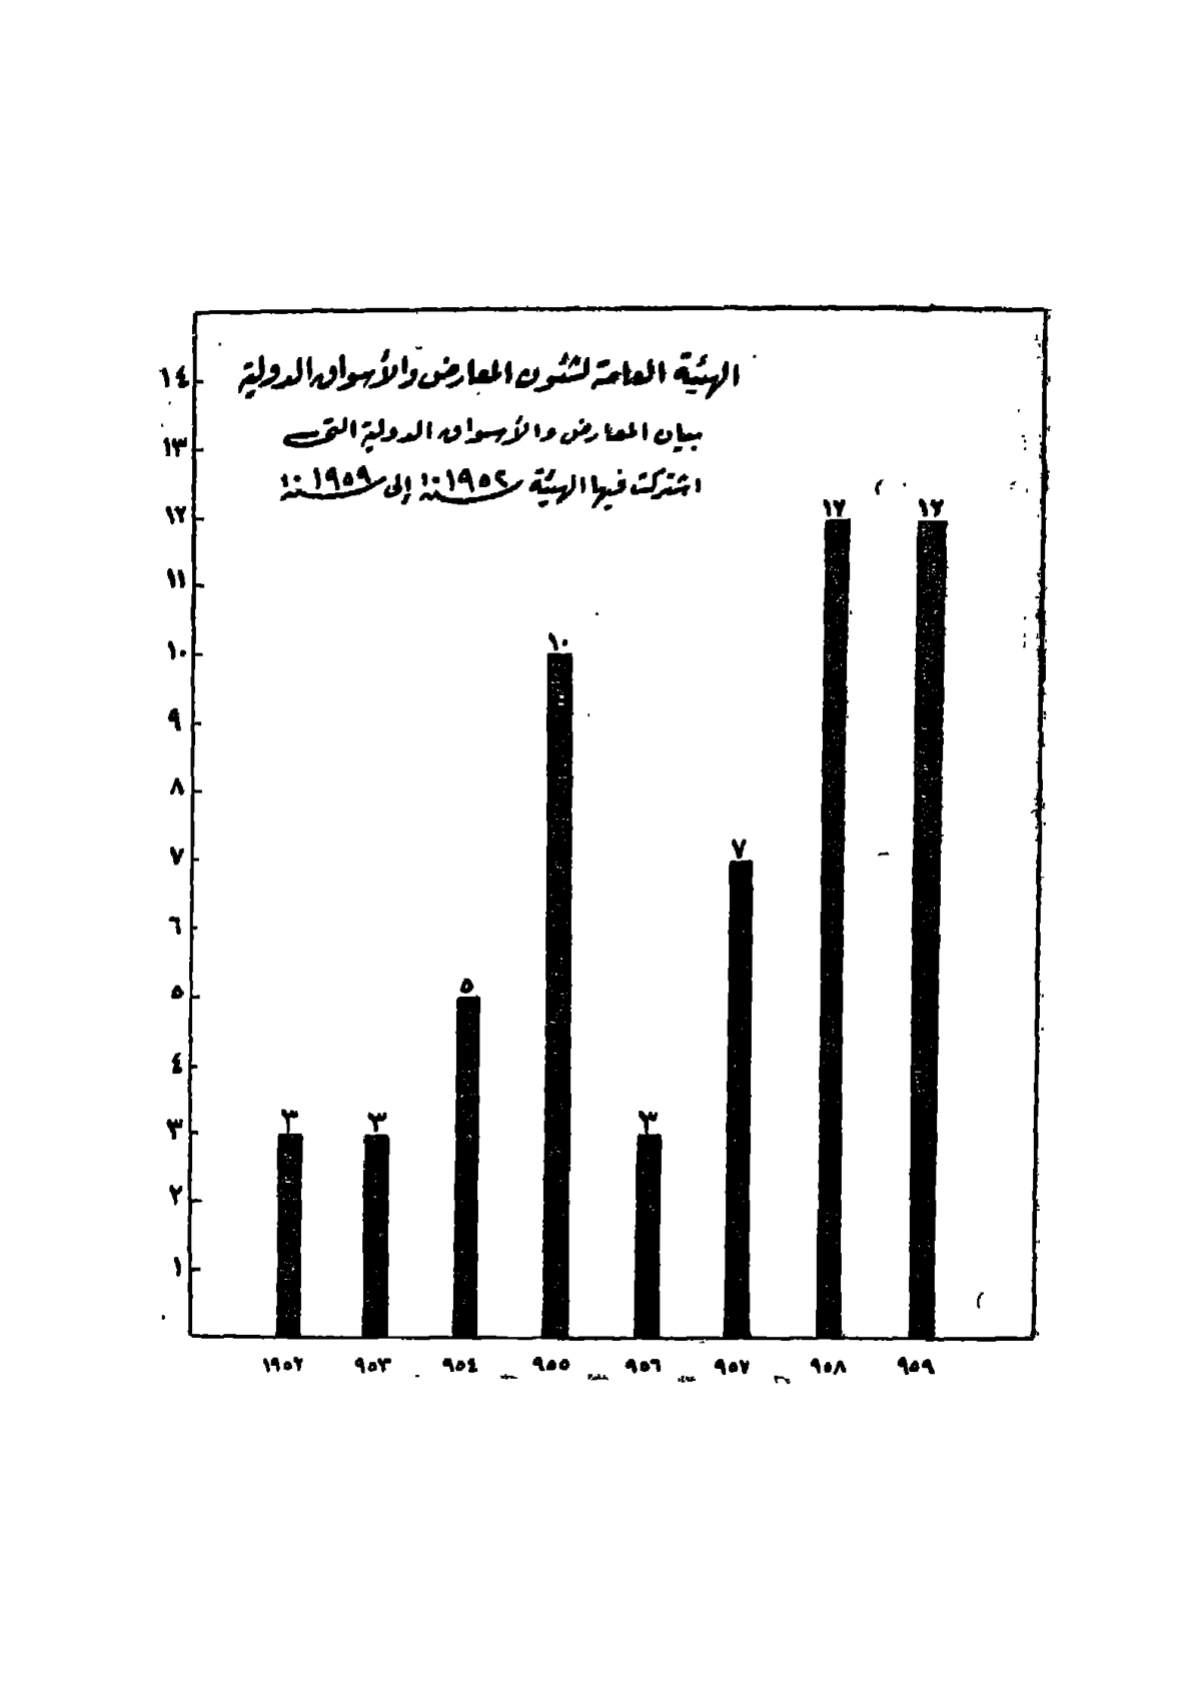 الهيئة العامة لشئون المعارض والأسواق الدولية
بيان المعارض والأسواق الدولية التى
اشتركت فيها الهيئة سنة ١٩٥٢ إلى سنة ١٩٥٩
١٤
١٣
١٢
١١
١٠
٩
٨
٧
٦
٥
٤
٣
٢
١
٣
٣
٥
١٠
٣
٧
١٢
١٢
١٩٥٢
٩٥٣
٩٥٤
٩٥٥
٩٥٦
٩٥٧
٩٥٨
٩٥٩